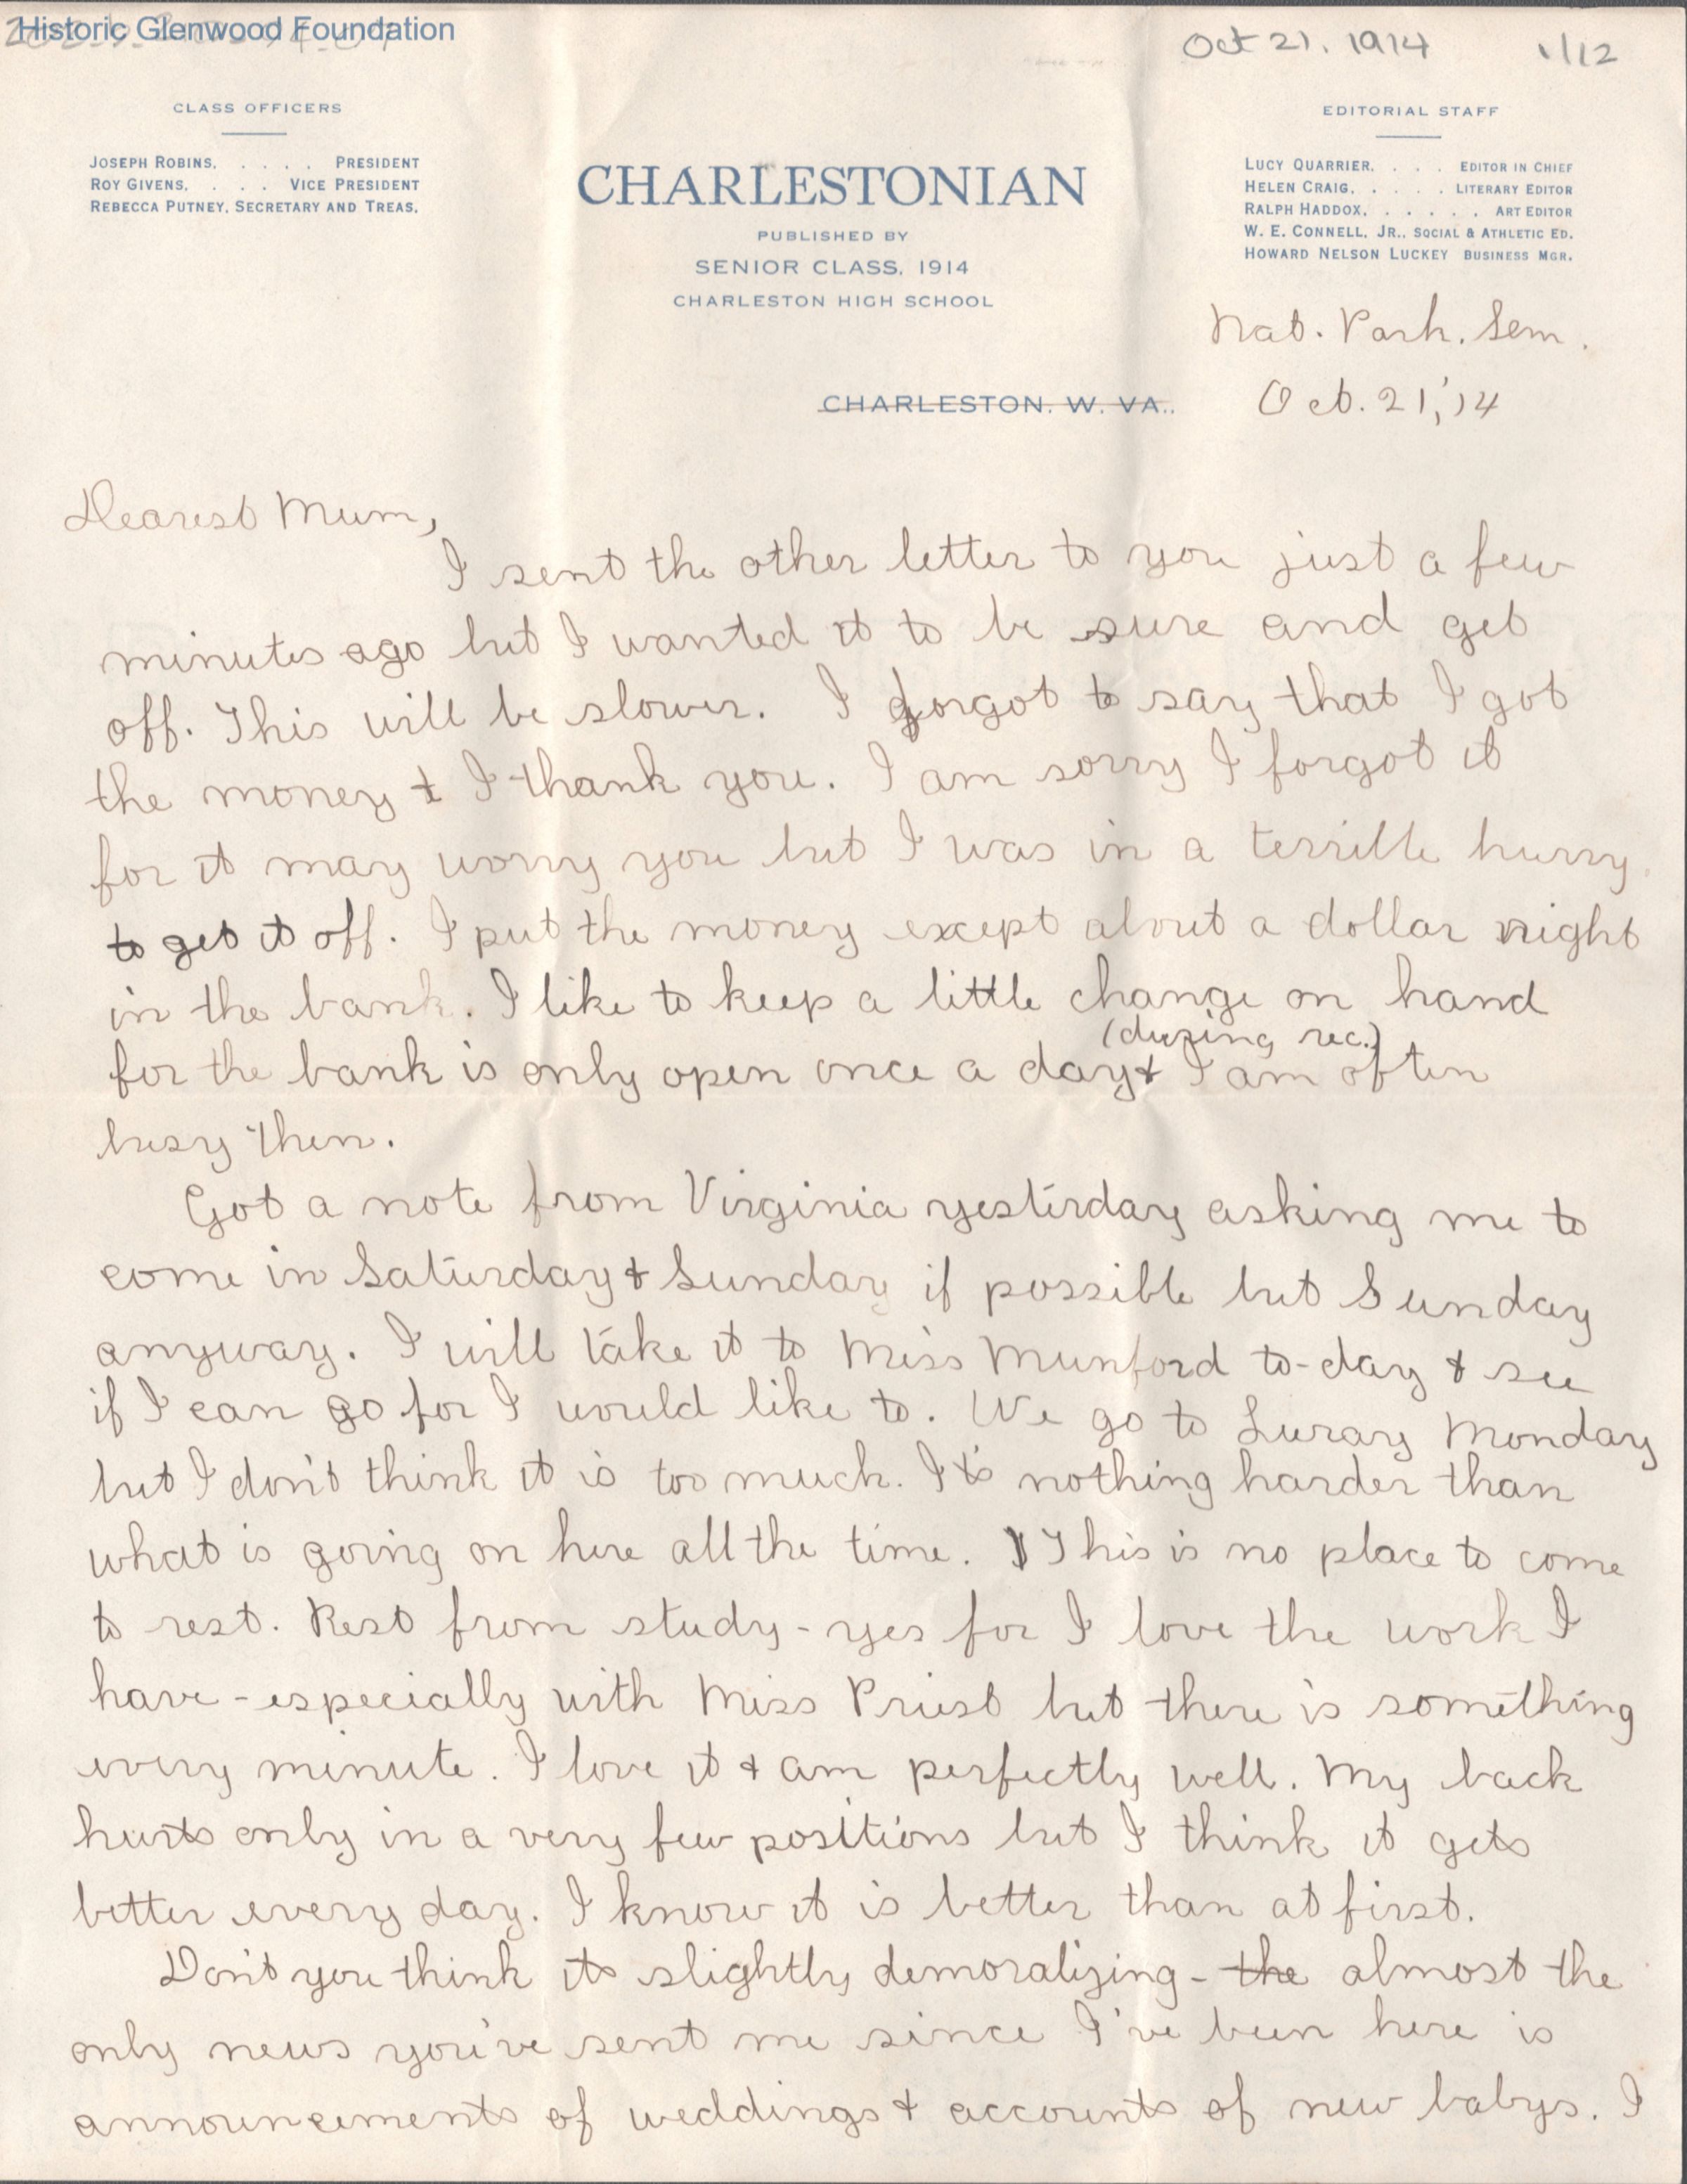 Historic Glenwood Foundation
Oct 21. 1914 1/12
CLASS OFFICERS
JOSEPH ROBINS. . . . . PRESIDENT
ROY GIVENS. . . . VICE PRESIDENT
REBECCA PUTNEY, SECRETARY AND TREAS.
CHARLESTONIAN
PUBLISHED BY
SENIOR CLASS, 1914
CHARLESTON HIGH SCHOOL
EDITORIAL STAFF
LUCY QUARRIER. . . . EDITOR IN CHIEF
HELEN CRAIG. . . . . LITERARY EDITOR
RALPH HADDOX. . . . . . ART EDITOR
W. E. CONNELL, JR.. SOCIAL & ATHLETIC ED.
HOWARD NELSON LUCKEY BUSINESS MGR.
Nat. Park. Sem.
CHARLESTON. W. VA.. Oct. 21, '14
Dearest Mum,
I sent the other letter to you just a few
minutes ago but I wanted it to be sure and get
off. This will be slower. I forgot to say that I got
the money & I thank you. I am sorry I forgot it
for it may worry you but I was in a terrible hurry
to get it off. I put the money except about a dollar right
in the bank. I like to keep a little change on hand
(during rec.)
for the bank is only open once a day & I am often
busy then.
Got a note from Virginia yesterday asking me to
come in Saturday & Sunday if possible but Sunday
anyway. I will take it to Miss Munford to-day & see
if I can go for I would like to. We go to Luray Monday
but I don't think it is too much. It's nothing harder than
what is going on here all the time. This is no place to come
to rest. Rest from study - yes for I love the work I
have - especially with Miss Priest but there is something
every minute. I love it & am perfectly well. My back
hurts only in a very few positions but I think it gets
better every day. I know it is better than at first.
Don't you think its slightly demoralizing - the almost the
only news you've sent me since I've been here is
announcements of weddings & accounts of new babys. I